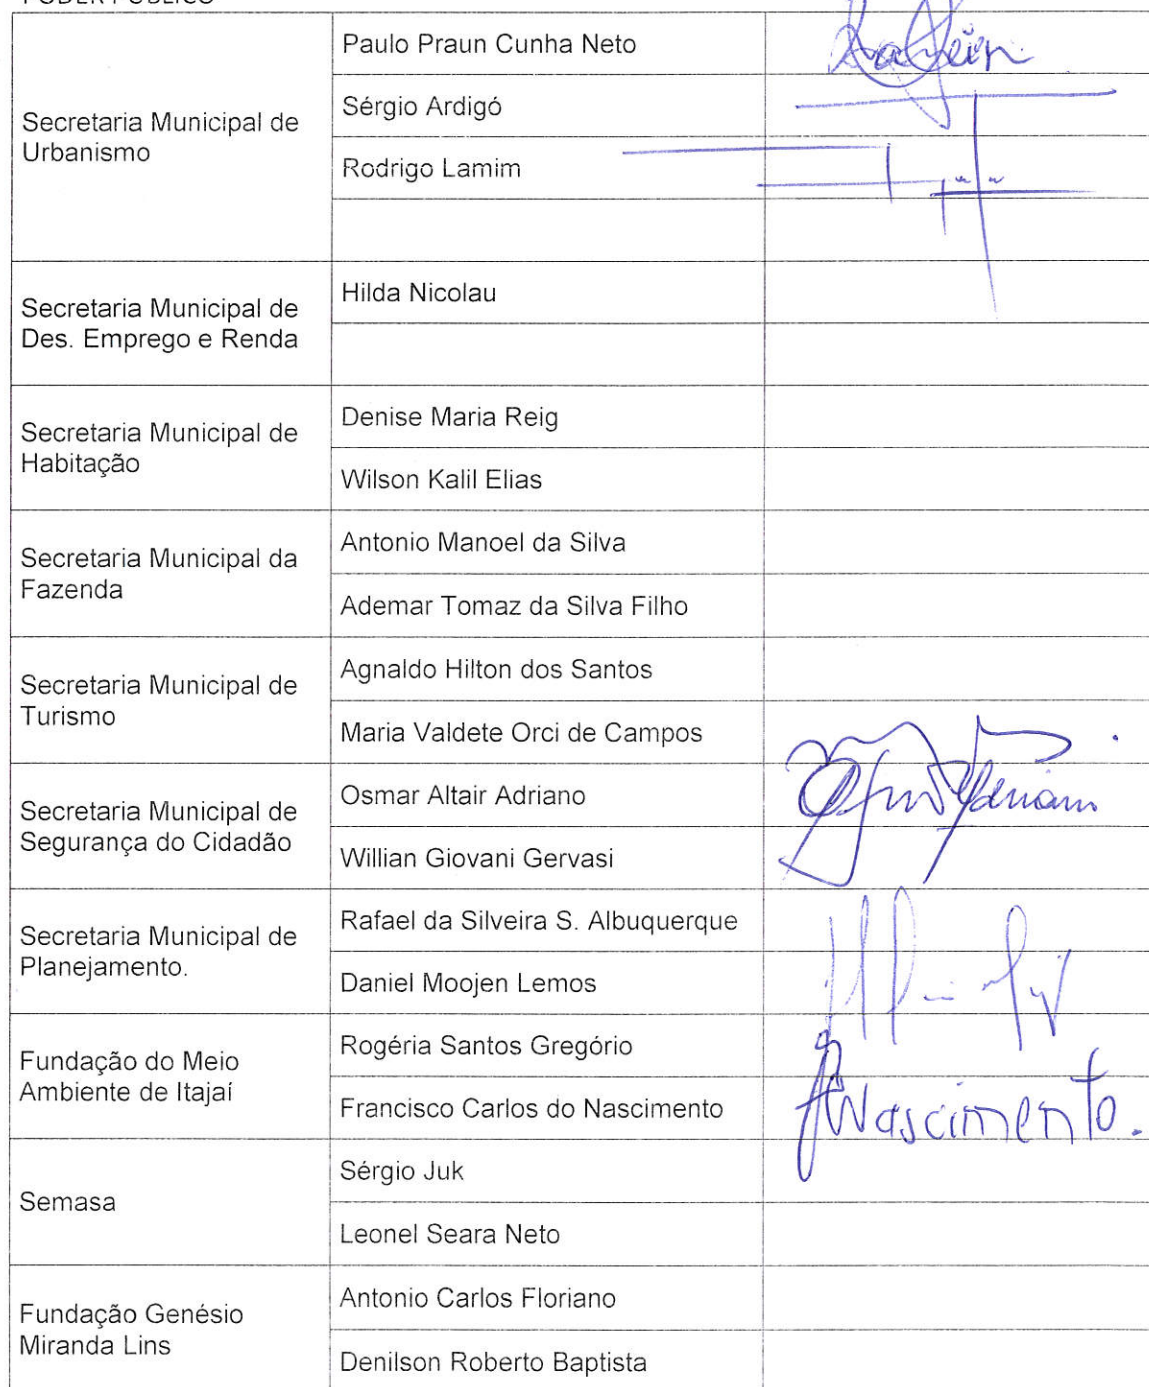 PODER PÚBLICO
Secretaria Municipal de
Urbanismo
Paulo Praun Cunha Neto
Sérgio Ardigó
Rodrigo Lamim
Secretaria Municipal de
Des. Emprego e Renda
Hilda Nicolau
Secretaria Municipal de
Habitação
Denise Maria Reig
Wilson Kalil Elias
Secretaria Municipal da
Fazenda
Antonio Manoel da Silva
Ademar Tomaz da Silva Filho
Secretaria Municipal de
Turismo
Agnaldo Hilton dos Santos
Maria Valdete Orci de Campos
Secretaria Municipal de
Segurança do Cidadão
Osmar Altair Adriano
Willian Giovani Gervasi
Secretaria Municipal de
Planejamento.
Rafael da Silveira S. Albuquerque
Daniel Moojen Lemos
Fundação do Meio
Ambiente de Itajaí
Rogéria Santos Gregório
Francisco Carlos do Nascimento
Nascimento.
Semasa
Sérgio Juk
Leonel Seara Neto
Fundação Genésio
Miranda Lins
Antonio Carlos Floriano
Denilson Roberto Baptista